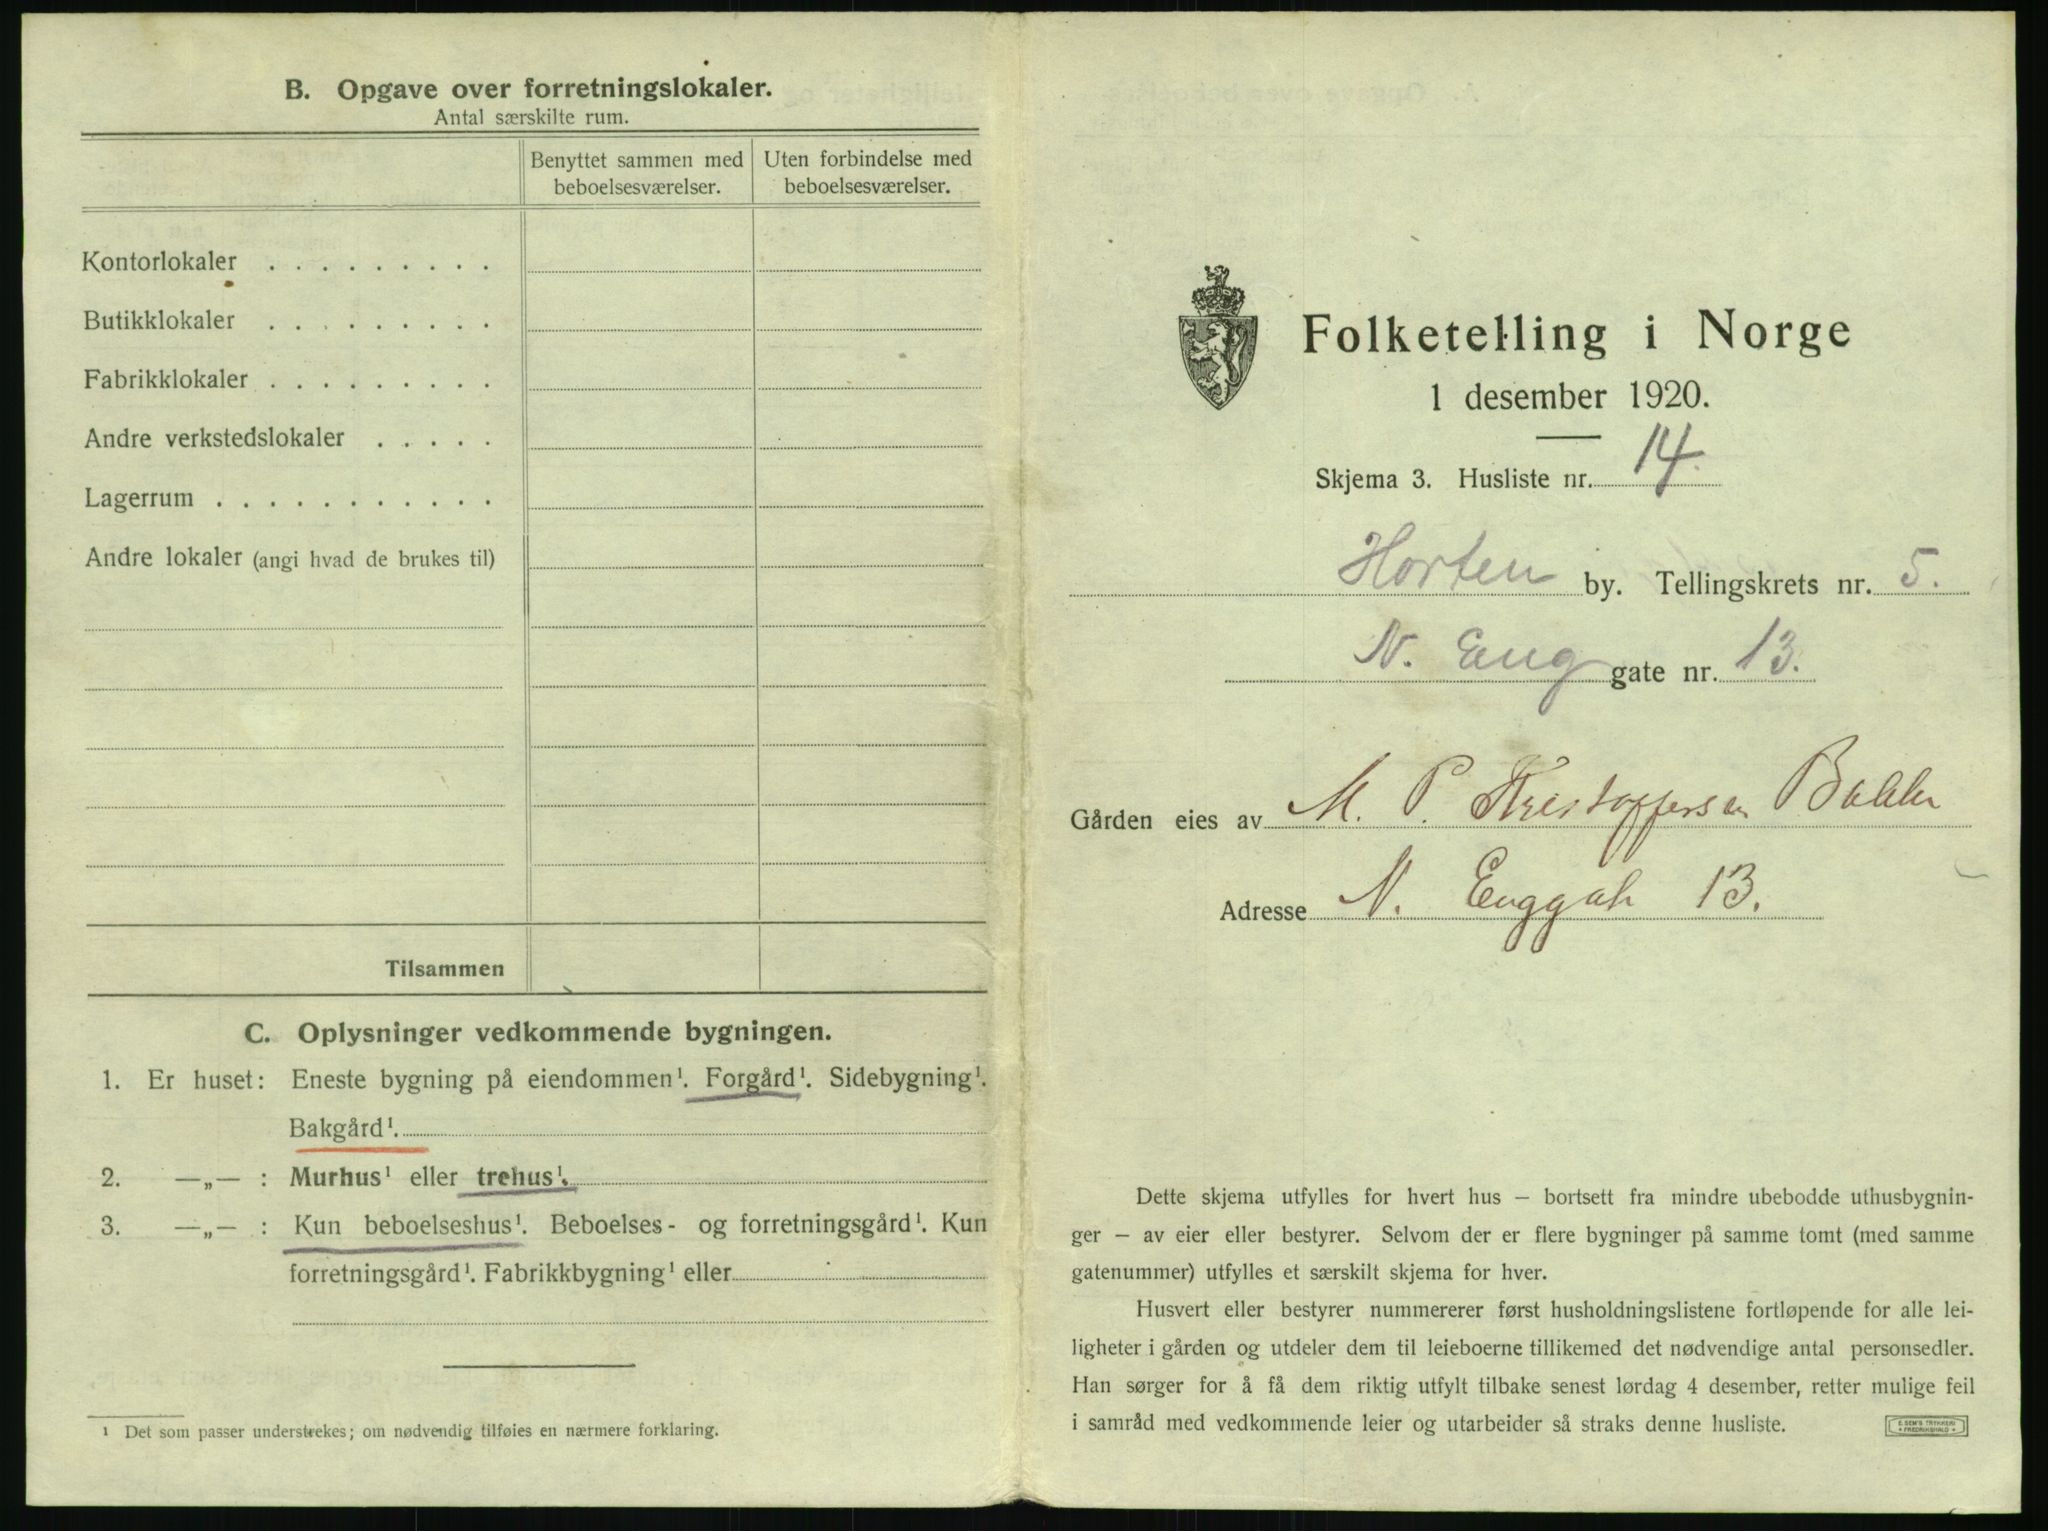 B. Opgave over forretningslokaler.
Antal særskilte rum.
Benyttet sammen med
beboelsesværelser.
Uten forbindelse med
beboelsesværelser.
Kontorlokaler . . . . . . . . .
Butikklokaler . . . . . . . . .
Fabrikklokaler . . . . . . . . .
Andre verkstedslokaler . . . . .
Lagerrum . . . . . . . . . . .
Andre lokaler (angi hvad de brukes til)
Tilsammen
C. Oplysninger vedkommende bygningen.
1. Er huset: Eneste bygning på eiendommen¹. Forgård¹. Sidebygning¹.
Bakgård¹.
2. —„— : Murhus¹ eller trehus¹.
3. —„— : Kun beboelseshus¹. Beboelses- og forretningsgård¹. Kun
forretningsgård¹. Fabrikkbygning¹ eller
¹ Det som passer understrekes; om nødvendig tilføies en nærmere forklaring.
Folketelling i Norge
1 desember 1920.
Skjema 3. Husliste nr. 14.
Horten by. Tellingskrets nr. 5.
N. Eng gate nr. 13.
Gården eies av M. P. Kristoffersen
Adresse N. Enggate 13.
Dette skjema utfylles for hvert hus – bortsett fra mindre ubebodde uthusbygnin-
ger – av eier eller bestyrer. Selvom der er flere bygninger på samme tomt (med samme
gatenummer) utfylles et særskilt skjema for hver.
Husvert eller bestyrer nummererer først husholdningslistene fortløpende for alle lei-
ligheter i gården og utdeler dem til leieboerne tillikemed det nødvendige antal personsedler.
Han sørger for å få dem riktig utfylt tilbake senest lørdag 4 desember, retter mulige feil
i samråd med vedkommende leier og utarbeider så straks denne husliste.
E. SEM'S TRYKKERI
FREDRIKSHALD